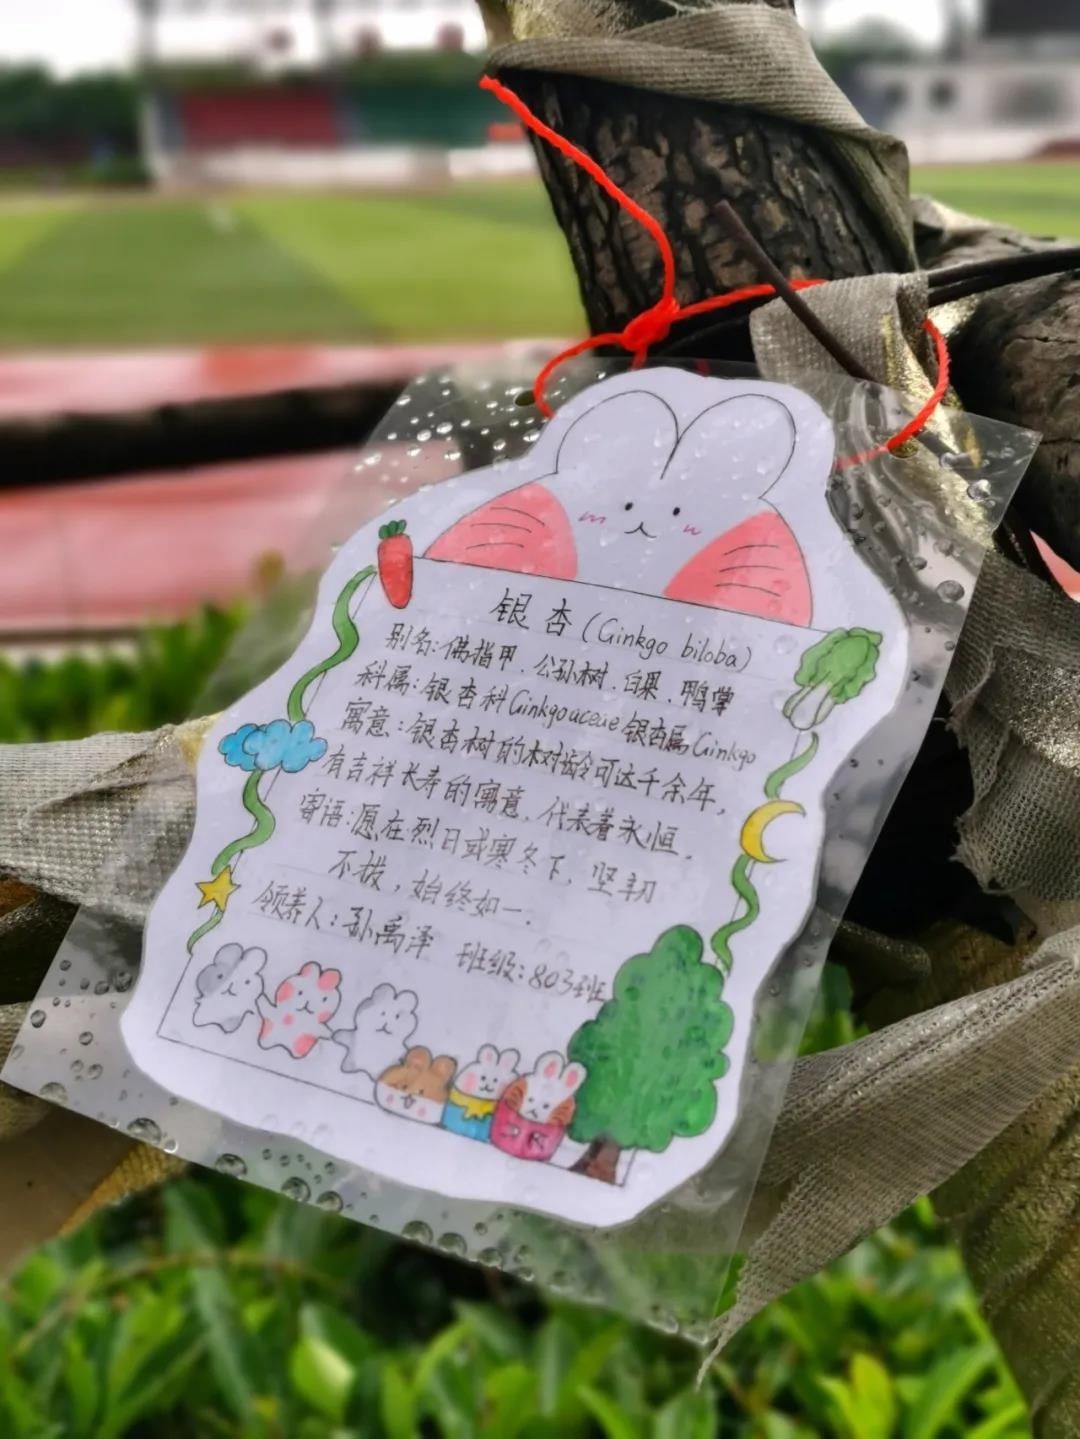 银杏(Ginkgo biloba)
别名:佛指甲、公孙树、白果、鸭掌
科属:银杏科Ginkgoaceae银杏属Ginkgo
寓意:银杏树的树龄可达千余年,
有吉祥长寿的寓意,代表着永恒.
寄语:愿在烈日或寒冬下,坚韧
不拔,始终如一.
领养人:孙禹泽 班级:803班